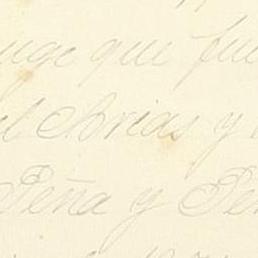 que fue
Arias y
Peña y Pe